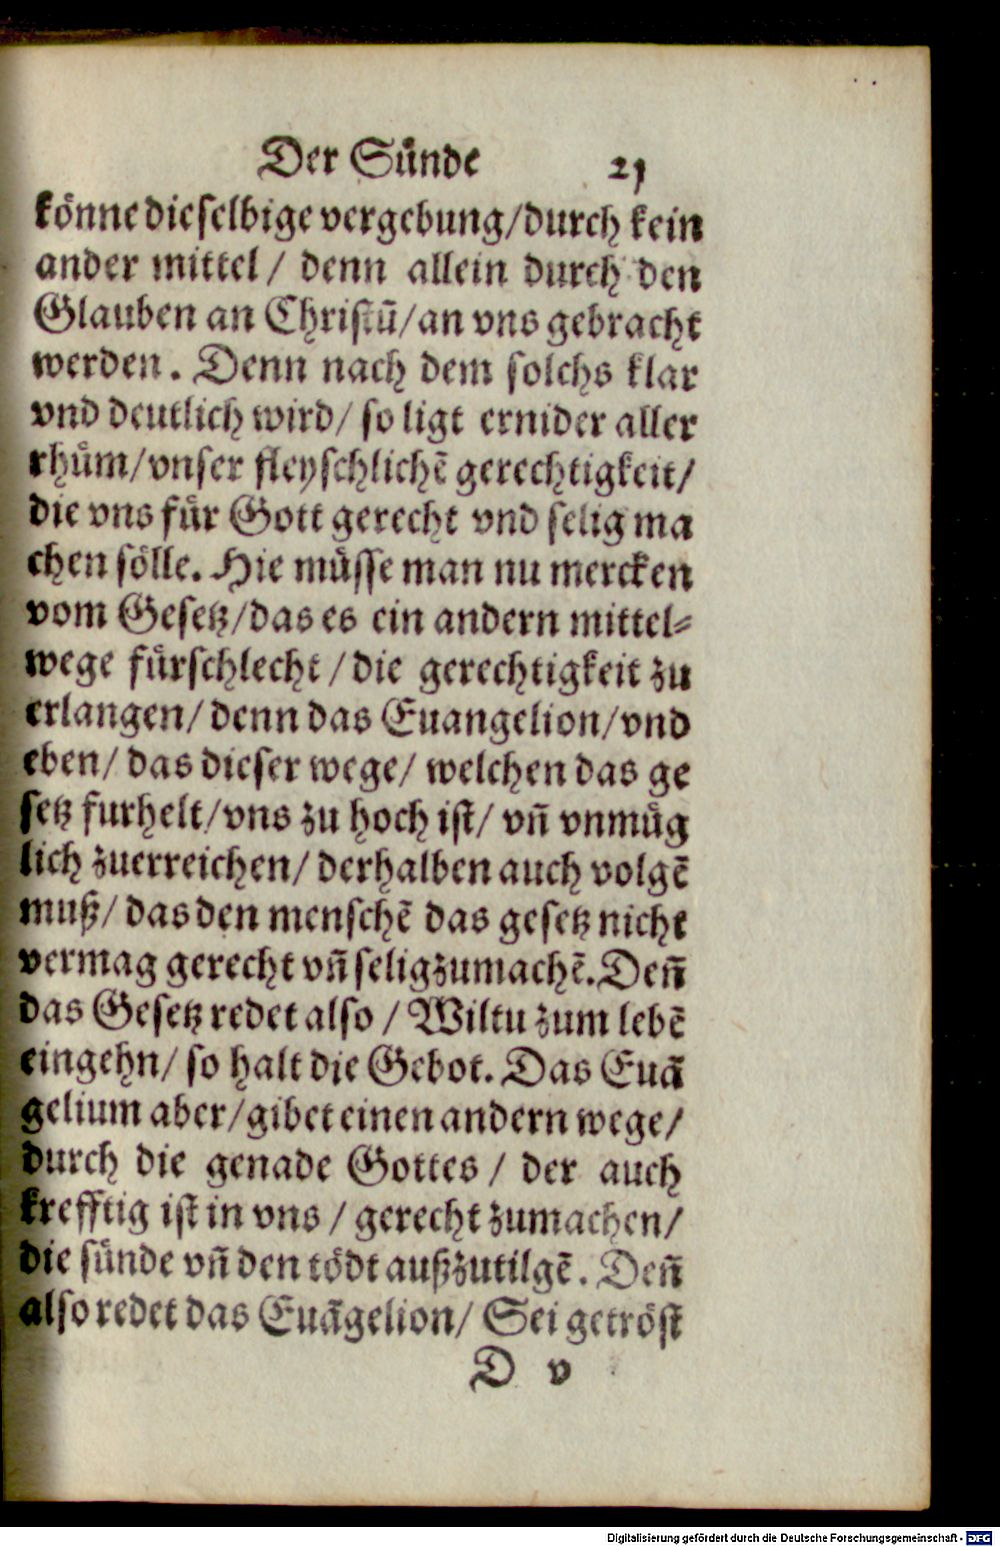 Der Sünde 21
könne dieselbige vergebung/durch kein
ander mittel / denn allein durch den
Glauben an Christū/an vns gebracht
werden. Denn nach dem solchs klar
vnd deutlich wird/ so ligt ernider aller
rhům/vnser fleyschlichē gerechtigkeit/
die vns für Gott gerecht vnd selig ma
chen sölle. Hie müsse man nu mercken
vom Gesetz/das es ein andern mittel⸗
wege fürschlecht / die gerechtigkeit zu
erlangen/ denn das Euangelion/vnd
eben/ das dieser wege/ welchen das ge
setz furhelt/vns zu hoch ist/ vñ vnmüg
lich zuerreichen/ derhalben auch volgē
muß/ das den menschē das gesetz nicht
vermag gerecht vñ selig zumachē. Deñ
das Gesetz redet also / Wiltu zum lebē
eingehn/ so halt die Gebot. Das Euā
gelium aber/gibet einen andern wege/
durch die genade Gottes / der auch
krefftig ist in vns / gerecht zumachen/
die sünde vñ den tödt außzutilgē. Deñ
also redet das Euāgelion/ Sei getröst
D v
Digitalisierung gefördert durch die Deutsche Forschungsgemeinschaft - DFG